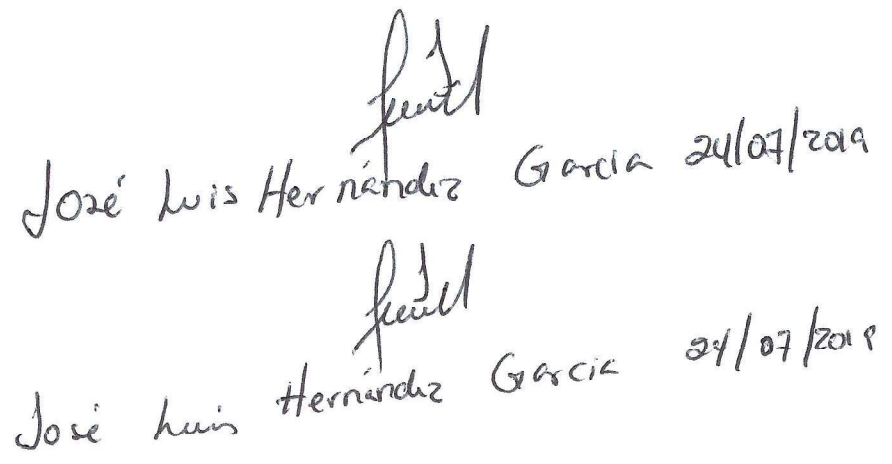 José Luis Hernández Garcia 24/07/2019
José Luis Hernández Garcia 24/07/2019